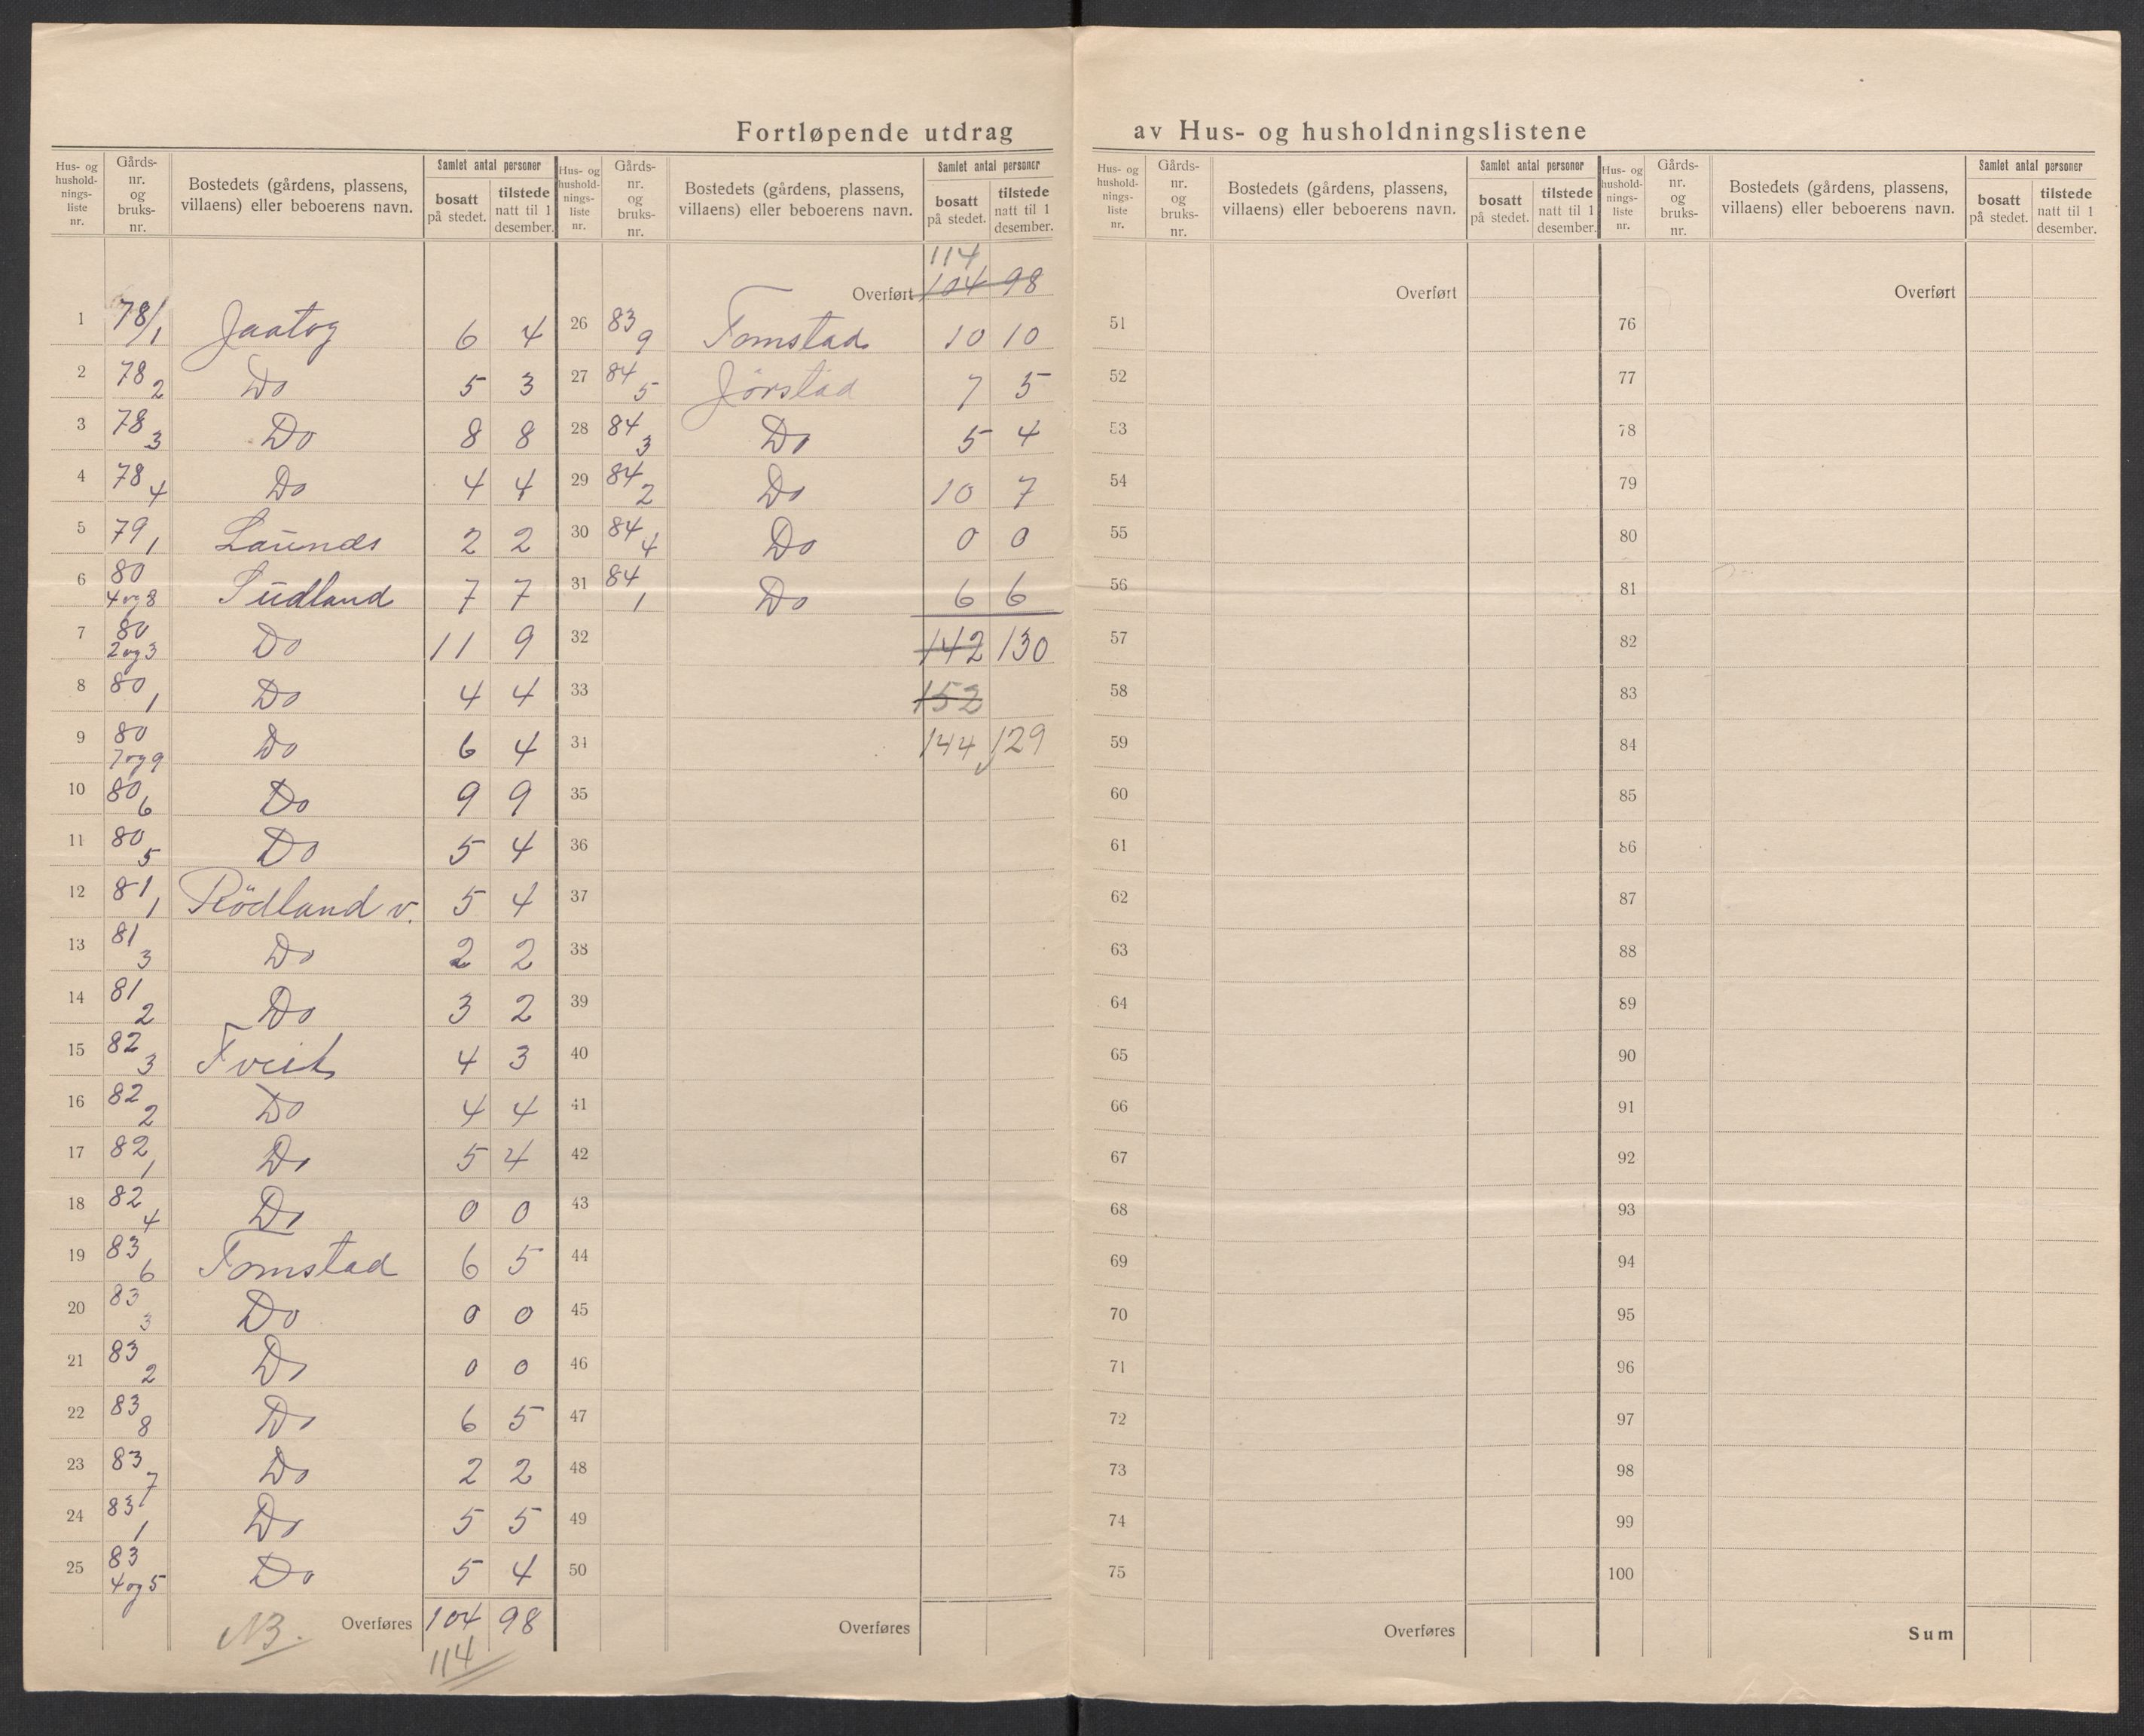 Fortløpende utdrag av Hus- og husholdningslistene
Hus- og husholdnings- liste nr. | Gårds- nr. og bruks- nr. | Bostedets (gårdens, plassens, villaens) eller beboerens navn. | Samlet antal personer | bosatt på stedet. | tilstede natt til 1 desember.
1 78/1 Jaatog 6 4
2 78 2 Do 5 3
3 78 3 Do 8 8
4 78 4 Do 4 4
5 79 1 Launes 2 2
6 80 4 og 8 Sudland 7 7
7 80 2 og 3 Do 11 9
8 80 1 Do 4 4
9 80 7 og 9 Do 6 4
10 80 6 Do 9 9
11 80 5 Do 5 4
12 81 1 Rödland v. 5 4
13 81 3 Do 2 2
14 81 2 Do 3 2
15 82 3 Tveit 4 3
16 82 2 Do 4 4
17 82 1 Do 5 4
18 82 4 Do 0 0
19 83 6 Tomstad 6 5
20 83 3 Do 0 0
21 83 2 Do 0 0
22 83 8 Do 6 5
23 83 7 Do 2 2
24 83 1 Do 5 5
25 83 4 og 5 Do 5 4
NB. Overføres 104 98
114
Hus- og husholdnings- liste nr. | Gårds- nr. og bruks- nr. | Bostedets (gårdens, plassens, villaens) eller beboerens navn. | Samlet antal personer | bosatt på stedet. | tilstede natt til 1 desember.
114
Overført 104 98
26 83 9 Tomstad 10 10
27 84 5 Jörstad 7 5
28 84 3 Do 5 4
29 84 2 Do 10 7
30 84 4 Do 0 0
31 84 1 Do 6 6
32 142 130
33 152
34 144 129
35
36
37
38
39
40
41
42
43
44
45
46
47
48
49
50
Overføres
Hus- og husholdnings- liste nr. | Gårds- nr. og bruks- nr. | Bostedets (gårdens, plassens, villaens) eller beboerens navn. | Samlet antal personer | bosatt på stedet. | tilstede natt til 1 desember.
Overført
51
52
53
54
55
56
57
58
59
60
61
62
63
64
65
66
67
68
69
70
71
72
73
74
75
Overføres
Hus- og husholdnings- liste nr. | Gårds- nr. og bruks- nr. | Bostedets (gårdens, plassens, villaens) eller beboerens navn. | Samlet antal personer | bosatt på stedet. | tilstede natt til 1 desember.
Overført
76
77
78
79
80
81
82
83
84
85
86
87
88
89
90
91
92
93
94
95
96
97
98
99
100
Sum